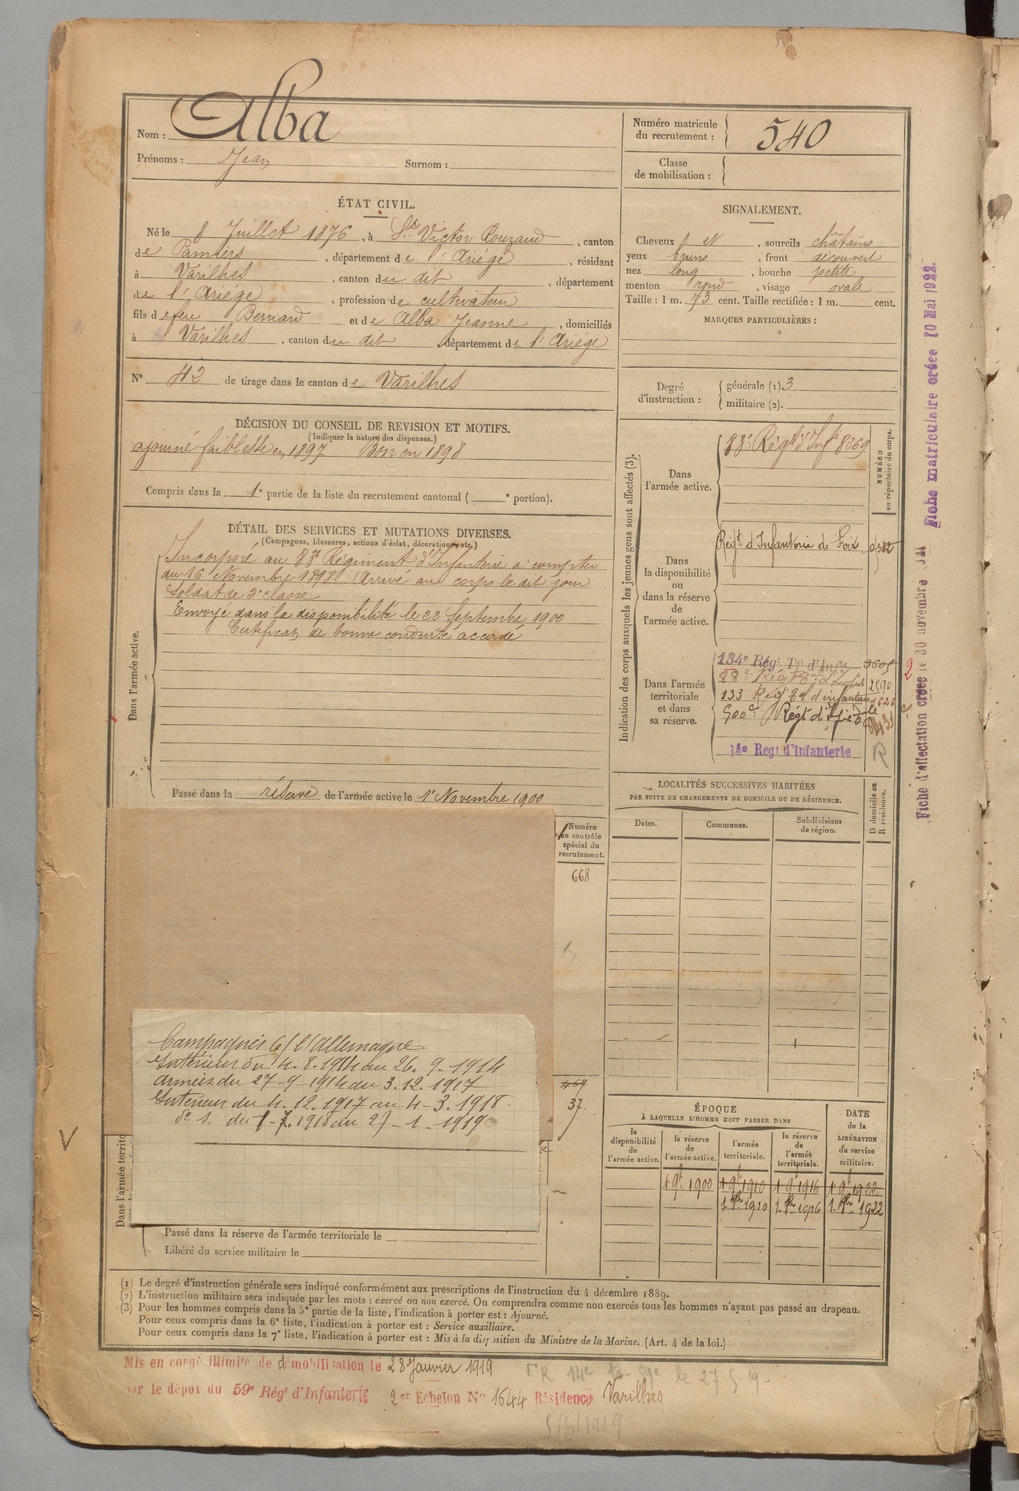 Nom : Alba
Prénoms : Jean Surnom :
Numéro matricule
du recrutement : 540
Classe
de mobilisation :
ÉTAT CIVIL.
Né le 8 Juillet 1876, à St Victor Rouzaud, canton
de Pamiers, département de l'Ariège, résidant
à Varilhes, canton du dit, département
de l'Ariège, profession de cultivateur
fils de feu Bernard et de Alba Jeanne, domiciliés
à Varilhes, canton du dit, département de l'Ariège
N° 42 de tirage dans le canton de Varilhes
SIGNALEMENT.
Cheveux et, sourcils châtains
yeux bruns, front découvert
nez long, bouche petite
menton rond, visage ovale
Taille : 1 m. 73 cent. Taille rectifiée : 1 m. cent.
MARQUES PARTICULIÈRES :
Degré
d'instruction : générale (1). 3
militaire (2).
DÉCISION DU CONSEIL DE REVISION ET MOTIFS.
(Indiquer la nature des dispenses.)
ajourné faiblesse en 1897 Bon en 1898
Compris dans la 1e partie de la liste du recrutement cantonal ( e portion).
DÉTAIL DES SERVICES ET MUTATIONS DIVERSES.
(Campagnes, blessures, actions d'éclat, décorations, etc.)
Dans l'armée active.
Incorporé au 88e Régiment d'Infanterie à compter
du 16 Novembre 1898. Arrivé au corps le dit jour
Soldat de 2e classe
Envoyé dans la disponibilité le 22 Septembre 1900
Certificat de bonne conduite accordé
Passé dans la réserve de l'armée active le 1er Novembre 1900
Indication des corps auxquels les jeunes gens sont affectés (3).
NUMÉRO
au répertoire du corps.
Dans
l'armée active.
88e Régt d'Inf 8569
Dans
la disponibilité
ou
dans la réserve
de
l'armée active.
Régt d'Infanterie de Foix
Dans l'armée
territoriale
et dans
sa réserve.
134e Régt Tal d'Infie
133 Régt d'infanterie
500e Régt d'
14e Regt d'Infanterie
R
Fiche d'affectation créée le 30 novembre
Fiche matriculaire créée 10 Mai 1922.
LOCALITÉS SUCCESSIVES HABITÉES
PAR SUITE DE CHANGEMENTS DE DOMICILE OU DE RÉSIDENCE.
Dates. Communes. Subdivisions
de région.
D domicile ou
R résidence.
Numéro
au contrôle
spécial du
recrutement.
668
37
Campagnes C/ l'Allemagne
Intérieur du 4.8.1914 au 26.9.1914
armées du 27-9-1914 au 3.12.1917
Intérieur du 4.12.1917 au 4-3.1918
du 1-7.1918 au 27-1-1919
ÉPOQUE
À LAQUELLE L'HOMME DOIT PASSER DANS
DATE
de la
LIBÉRATION
du service
militaire.
la
disponibilité
de
l'armée active.
la réserve
de
l'armée active.
l'armée
territoriale.
la réserve
de
l'armée
territoriale.
1 9bre 1900 1 9bre 1910 1 9bre 1916 1 9bre 1922
1.8bre 1910 1.8bre 1916 1.8bre 1922
Dans l'armée territo
Passé dans la réserve de l'armée territoriale le
Libéré du service militaire le
(1) Le degré d'instruction générale sera indiqué conformément aux prescriptions de l'instruction du 4 décembre 1889.
(2) L'instruction militaire sera indiquée par les mots : exercé ou non exercé. On comprendra comme non exercés tous les hommes n'ayant pas passé au drapeau.
(3) Pour les hommes compris dans la 5e partie de la liste, l'indication à porter est : Ajourné.
Pour ceux compris dans la 6e liste, l'indication à porter est : Service auxiliaire.
Pour ceux compris dans la 7e liste, l'indication à porter est : Mis à la disposition du Ministre de la Marine. (Art. 4 de la loi.)
Mis en congé illimité de démobilisation le 28 Janvier 1919
par le dépôt du 59e Régt d'Infanterie 2er Echelon N° 1644 Résidence Varilhes